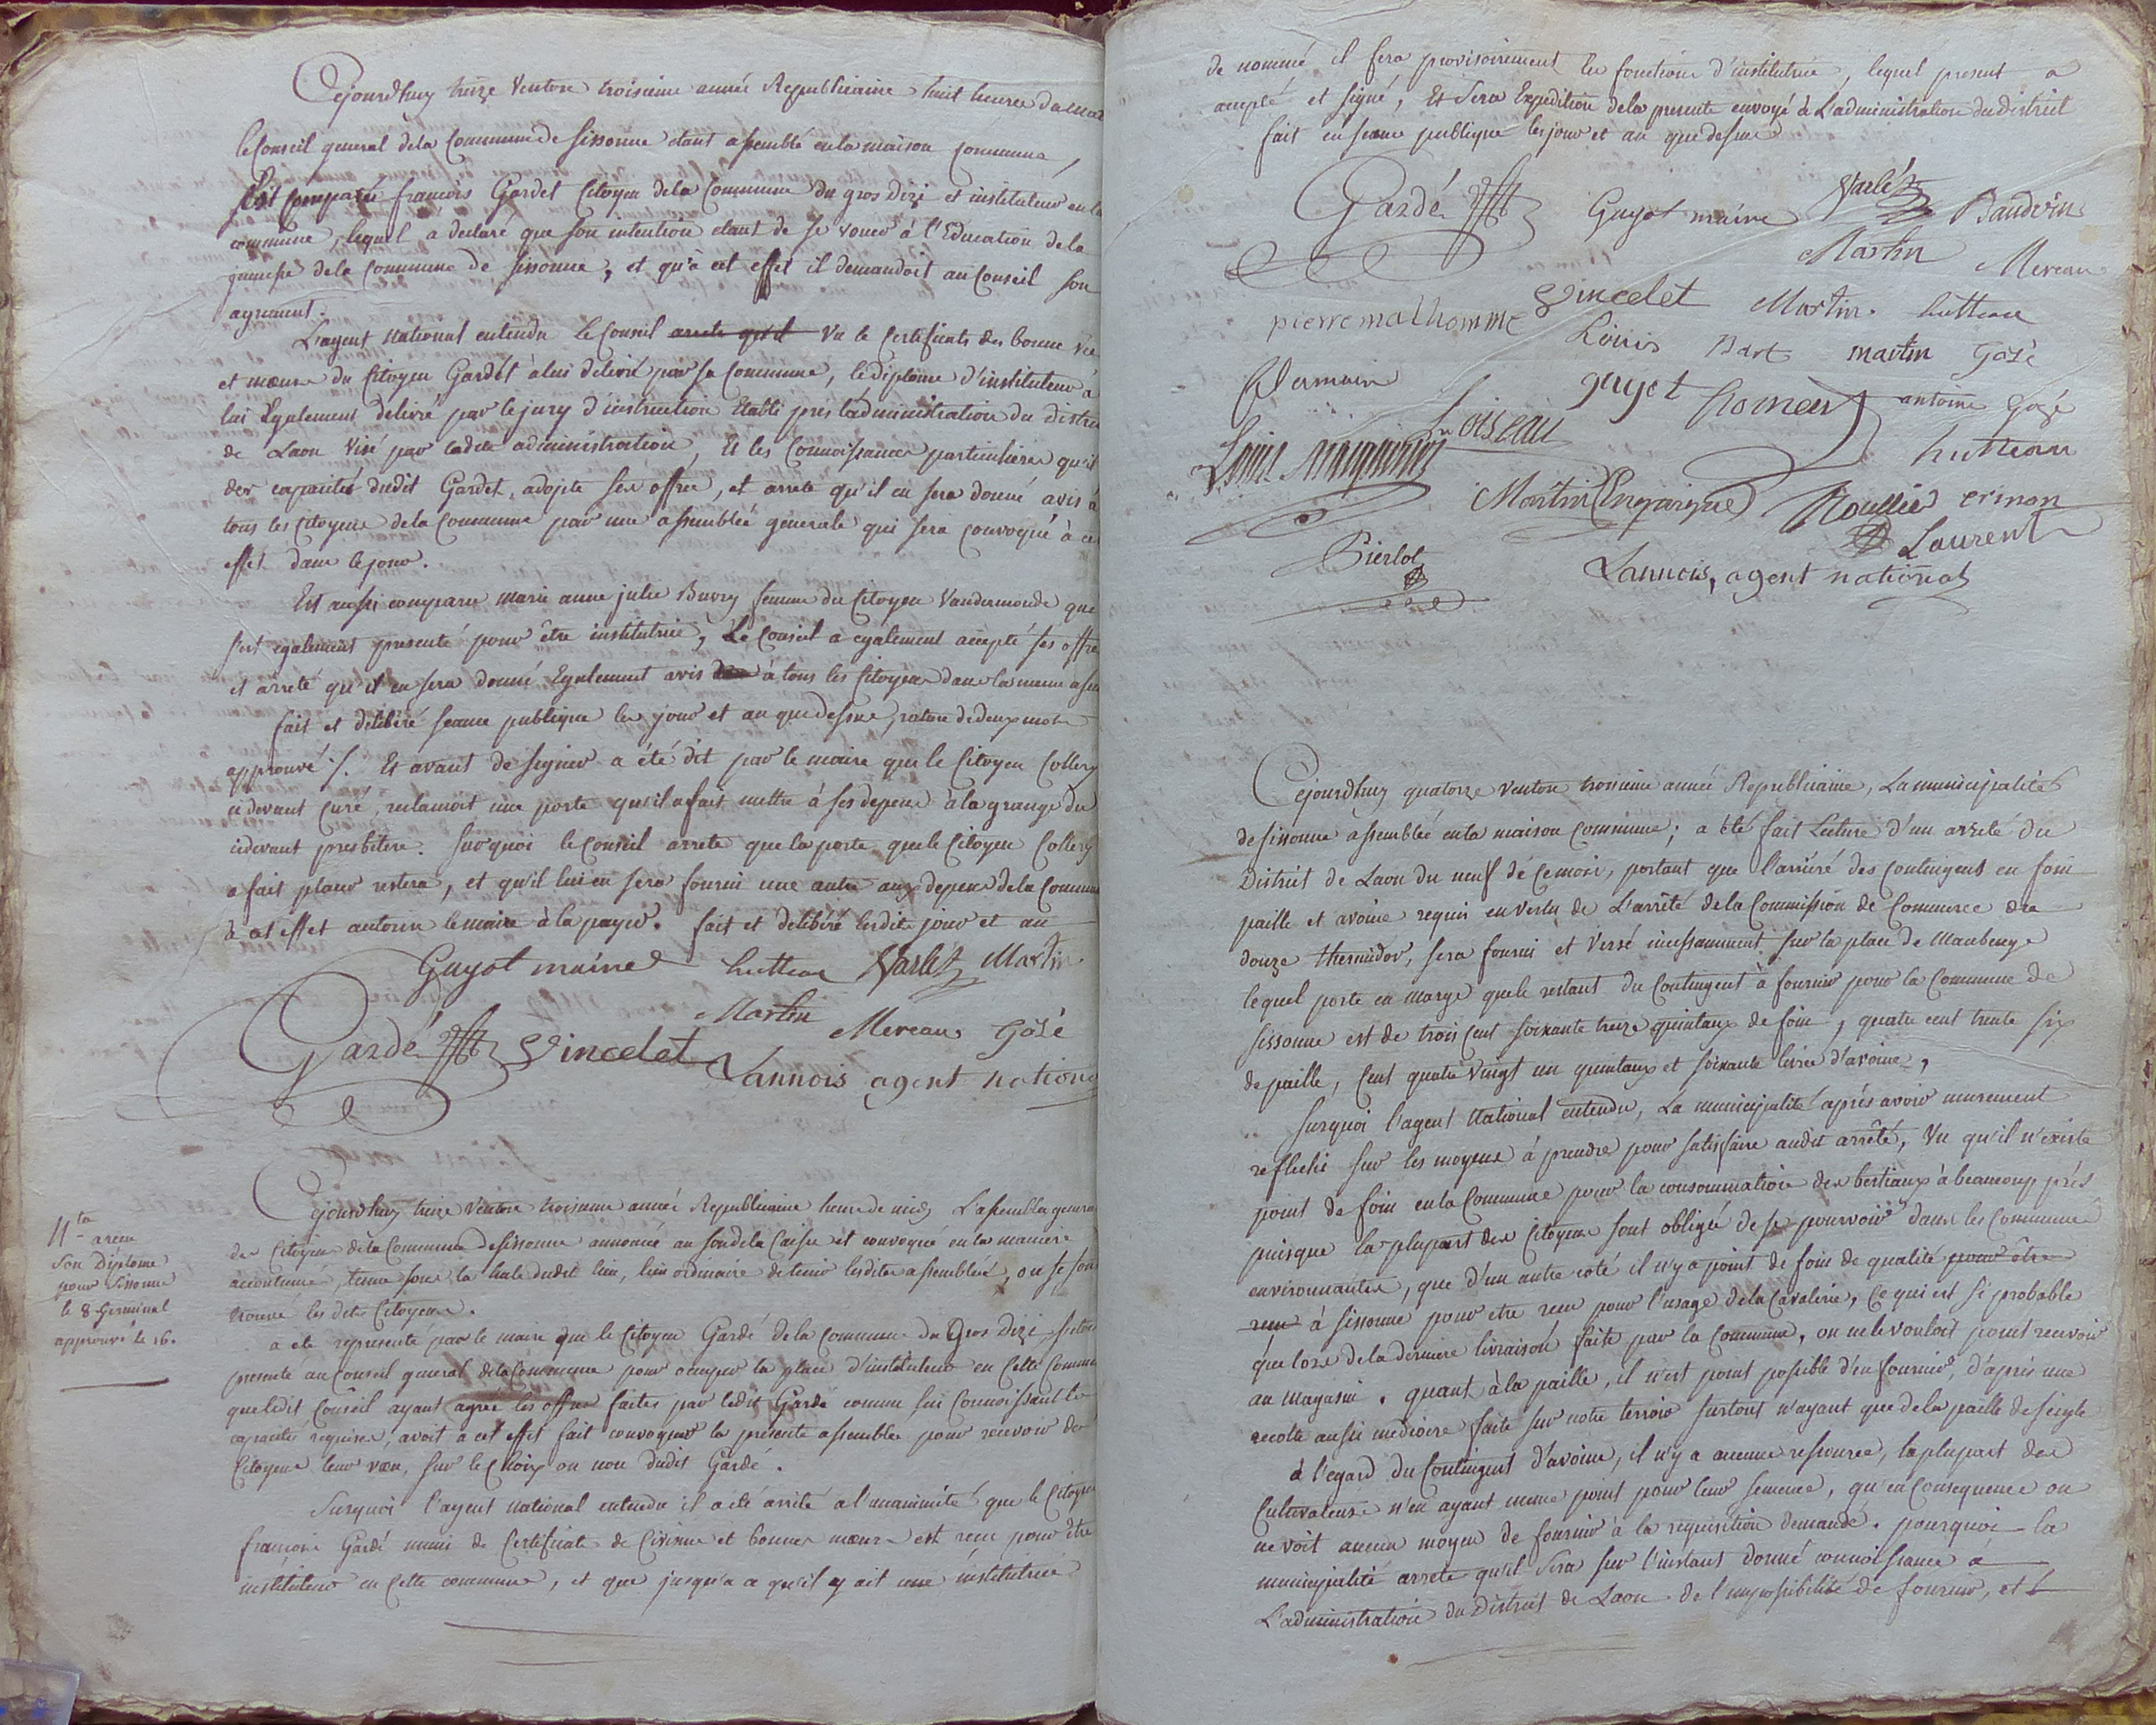 Cejourdhuy treize Ventose troisieme année Republicaine huit heures du mat
le Conseil general dela Commune de Sissonne etant assemblé en la maison Commune,
Est Comparu francois Gardet Citoyen dela Commune du gros Dizi et instituteur en la
commune, lequel a declaré que son intention etant de se vouer à l'Education dela
jeunesse dela Commune de Sissonne, et qu'à cet effet il demandoit au Conseil son
agrement.
L'agent National entendu Le Conseil arrete qu'il Vu le Certificats des bonne vie
et mœurs du Citoyen Gardet à lui delivré par sa Commune, le diplome d'instituteur à
lui Egalement delivré par le jury d'instruction Etabli pres l'administration du distri
de Laon Visé par ladite administration, Et les Connoissances particulieres qu'il
des capacités dudit Gardet, adopte ses offres, et arrete qu'il en sera donné avis à
tous les Citoyens dela Commune par une assemblée generale qui sera convoqué à ce
effet dans le jour.
Est aussi comparu marie anne julie Buvry femme du Citoyen Vandermonde que
s'est egalement presenté pour être institutrice, Le Conseil a egalement accepté ses offre
et arreté qu'il en sera donné Egalement avis à tous les Citoyens dans la meme asse
fait et deliberé seance publique les jour et an que dessus, rature de deux mots
approuvé ./. Et avant de signer a été dit par le maire que le Citoyen Collery
cidevant Curé, reclamoit une porte qu'il a fait mettre à ses depens à la grange du
cidevant presbitere. surquoi le Conseil arrete que la porte que le Citoyen Collery
a fait placer restera, et qu'il lui en sera fourni une autre aux depens dela Commune
à cet effet autorise le maire à la payer. fait et deliberé lesdits jour et an
Guyot maire hutteau Varlet Martin
Martin Mereau Gozé
Gardé Vincelet Lannois agent nationa
Cejourdhuy treize Ventose troisieme année Republicaine heure de midy L'assemblée genera
des Citoyens dela Commune de Sissonne annoncée au son dela Caisse et convoqué en la maniere
accoutumé, tenue sous la halle dudit lieu, lieu ordinaire de tenir lesdites assemblées, ou se son
trouvé lesdits Citoyens.
a eté representé par le maire que le Citoyen Gardé dela Commune du Gros Dizi s'etoit
presenté au Conseil general dela Commune pour occuper la place d'instituteur en Cette Commune
que ledit Conseil ayant agréé les offres faites par ledit Gardé comme lui Connoissant les
capacités requises, avoit à cet effet fait convoquer la presente assemblée pour recevoir des
Citoyens leur vœu, sur le Choix ou non dudit Gardé.
Surquoi l'agent national entendu il a été arreté à l'unanimité que le Citoyen
francois Gardé muni de Certificats de Civisme et bonnes mœurs est recu pour être
instituteur en Cette commune, et que jusqu'a ce qu'il y ait une institutrice
Son Diplome
pour Sissonne
le 8 Germinal
approuvé le 16.
de nommé il fera provisoirement les fonctions d'institutrice, lequel present a
accepté et signé, Et sera Expedition dela presente envoyé à L'administration du District
fait en seance publique les jour et an que dessus
Gardé Guyot maire Varlet Baudoin
Martin Mereau
pierre malhomme Vincelet Martin hutteau
Louis Bart martin Gozé
Germain guyot homery antoine Gozé
Louis Loiseau hutteau
Martin Roullié crinon
Pierlot Laurent
Lannois, agent national
Cejourdhuy quatorze ventose troisieme année Republicaine, La municipalité
de Sissonne assemblée en la maison Commune; a été fait Lecture d'un arreté du
District de Laon du neuf de ce mois, portant que l'arrieré des Contingens en foin
paille et avoine requis en vertu de L'arrêté dela Commission de Commerce du
douze thermidor, sera fourni et Versé incessamment sur la place de Maubeuge
lequel porte en marge que le restant du Contingent à fournir pour la Commune de
Sissonne est de trois Cent soixante treize quintaux de foin, quatre cent trente six
de paille, Cent quatre Vingt un quintaux et soixante livres d'avoine,
Surquoi l'agent National entendu, La municipalité après avoir murement
reflechi sur les moyens à prendre pour satisfaire audit arrêté, Vu qu'il n'existe
point de foin en la Commune pour la consommation des bestiaux à beaucoup près
puisque la plupart des Citoyens sont obligés de se pourvoir dans les Communes
environnantes, que d'un autre coté il n'y a point de foin de qualité pour être
recu à Sissonne pour etre recu pour l'usage dela Cavalerie, Ce qui est si probable
que lors dela derniere livraison faite par la Commune, on ne le vouloit point recevoir
au magasin. quant à la paille, il n'est point possible d'en fournir, d'après une
recolte aussi mediocre faite sur notre terroir surtout n'ayant que dela paille de seigle
à l'egard du Contingent d'avoine, il n'y a aucune ressource, la plupart des
Cultivateurs n'en ayant meme point pour leur semence, qu'en Consequence on
ne voit aucun moyen de fournir à la requisition demandé. pourquoi la
municipalité arrete qu'il sera sur l'instant donné connoissance à
L'administration du District de Laon de l'impossibilité de fournir, et